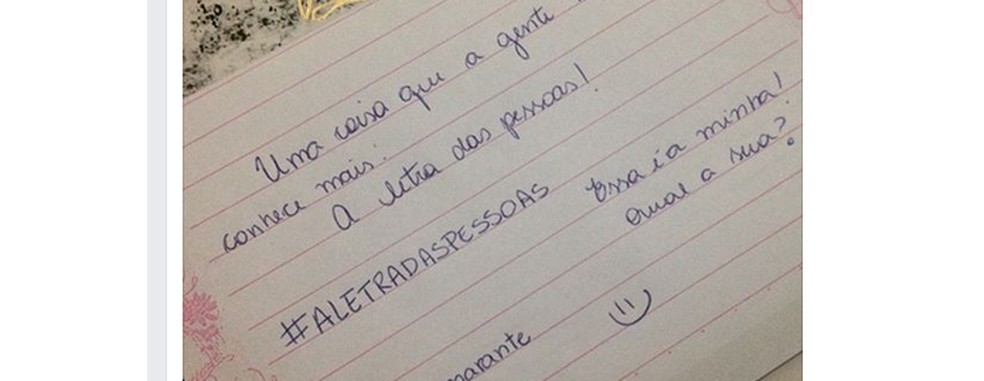 Uma coisa que a gente
conhece mais:
A letra das pessoas!
#ALETRADASPESSOAS
Essa é a minha!
Qual a sua?
marante